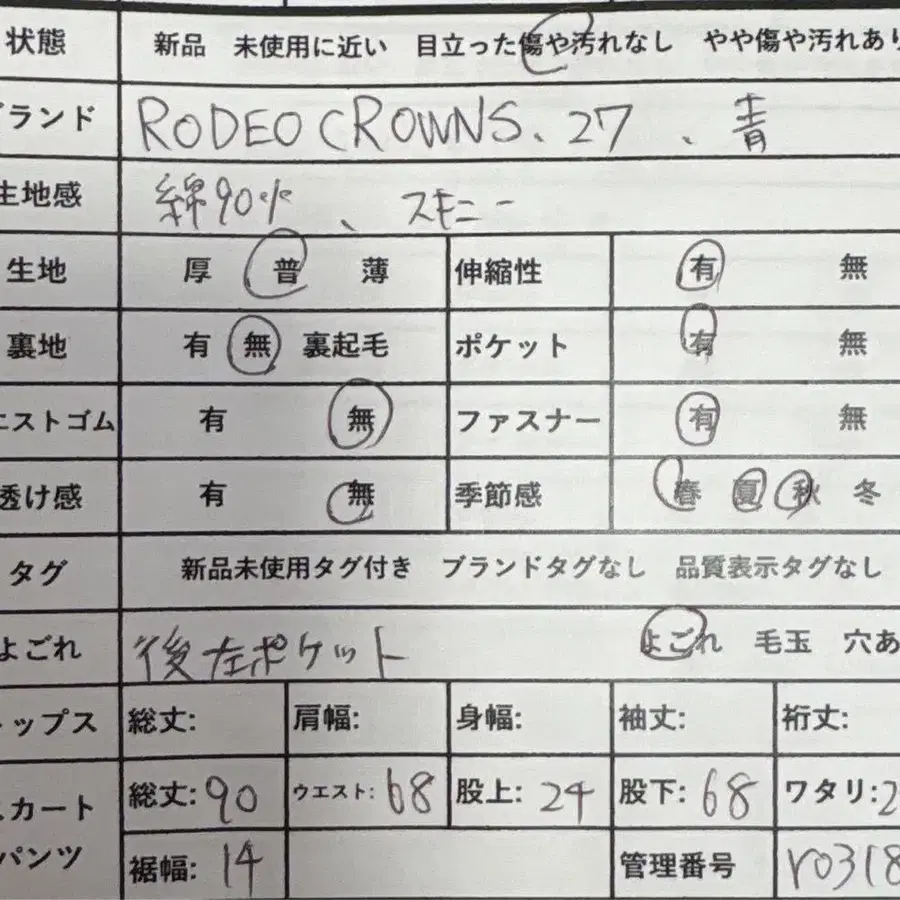 状態 新品 未使用に近い 目立った傷や汚れなし やや傷や汚れあり
ランド RODEO CROWNS、27、青
生地感 綿90%、スキニー
生地 厚 普 薄 伸縮性 有 無
裏地 有 無 裏起毛 ポケット 有 無
エストゴム 有 無 ファスナー 有 無
透け感 有 無 季節感 春 夏 秋 冬
タグ 新品未使用タグ付き ブランドタグなし 品質表示タグなし
よごれ 後左ポケット よごれ 毛玉 穴あ
ップス 総丈: 肩幅: 身幅: 袖丈: 裄丈:
スカート 総丈:90 ウエスト:68 股上:24 股下:68 ワタリ:2
パンツ 裾幅:14 管理番号 r0318